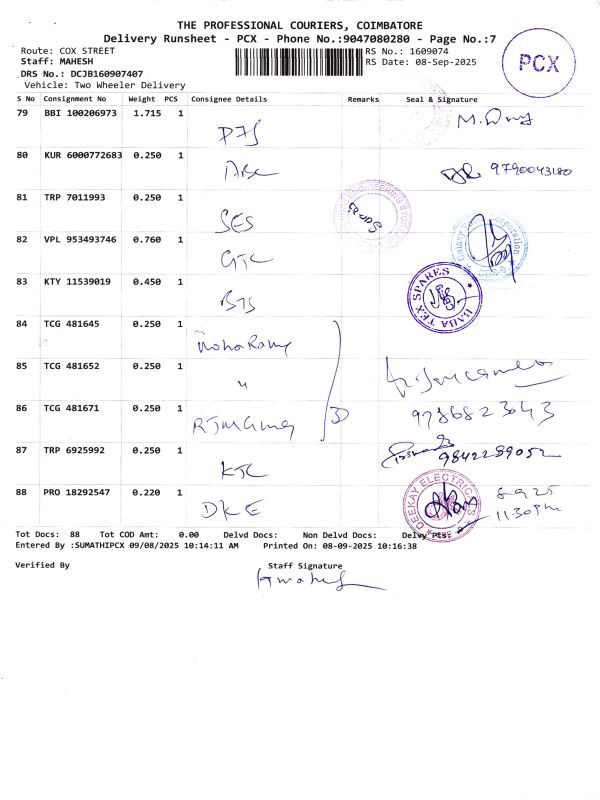 THE PROFESSIONAL COURIERS, COIMBATORE
Delivery Runsheet - PCX - Phone No.:9047080280 - Page No.:7
Route: COX STREET
RS No.: 1609074
Staff: MAHESH
RS Date: 08-Sep-2025
DRS No.: DCJB160907407
Vehicle: Two Wheeler Delivery
PCX
S No Consignment No Weight PCS Consignee Details Remarks Seal & Signature
79 BBI 100206973 1.715 1
80 KUR 6000772683 0.250 1
9790043180
81 TRP 7011993 0.250 1
SES
ENGINEERING
82 VPL 953493746 0.760 1
GTC
Galaxy Corporation
83 KTY 11539019 0.450 1
BTS
BABA TEX SPARES
84 TCG 481645 0.250 1
85 TCG 481652 0.250 1
"
86 TCG 481671 0.250 1
3
9786823043
87 TRP 6925992 0.250 1
KTC
9842289052
88 PRO 18292547 0.220 1
DKE
DEEKAY ELECTRICALS
8 9 25
11.30pm
Tot Docs: 88 Tot COD Amt: 0.00 Delvd Docs: Non Delvd Docs: Delvy Pts:
Entered By :SUMATHIPCX 09/08/2025 10:14:11 AM Printed On: 08-09-2025 10:16:38
Verified By
Staff Signature